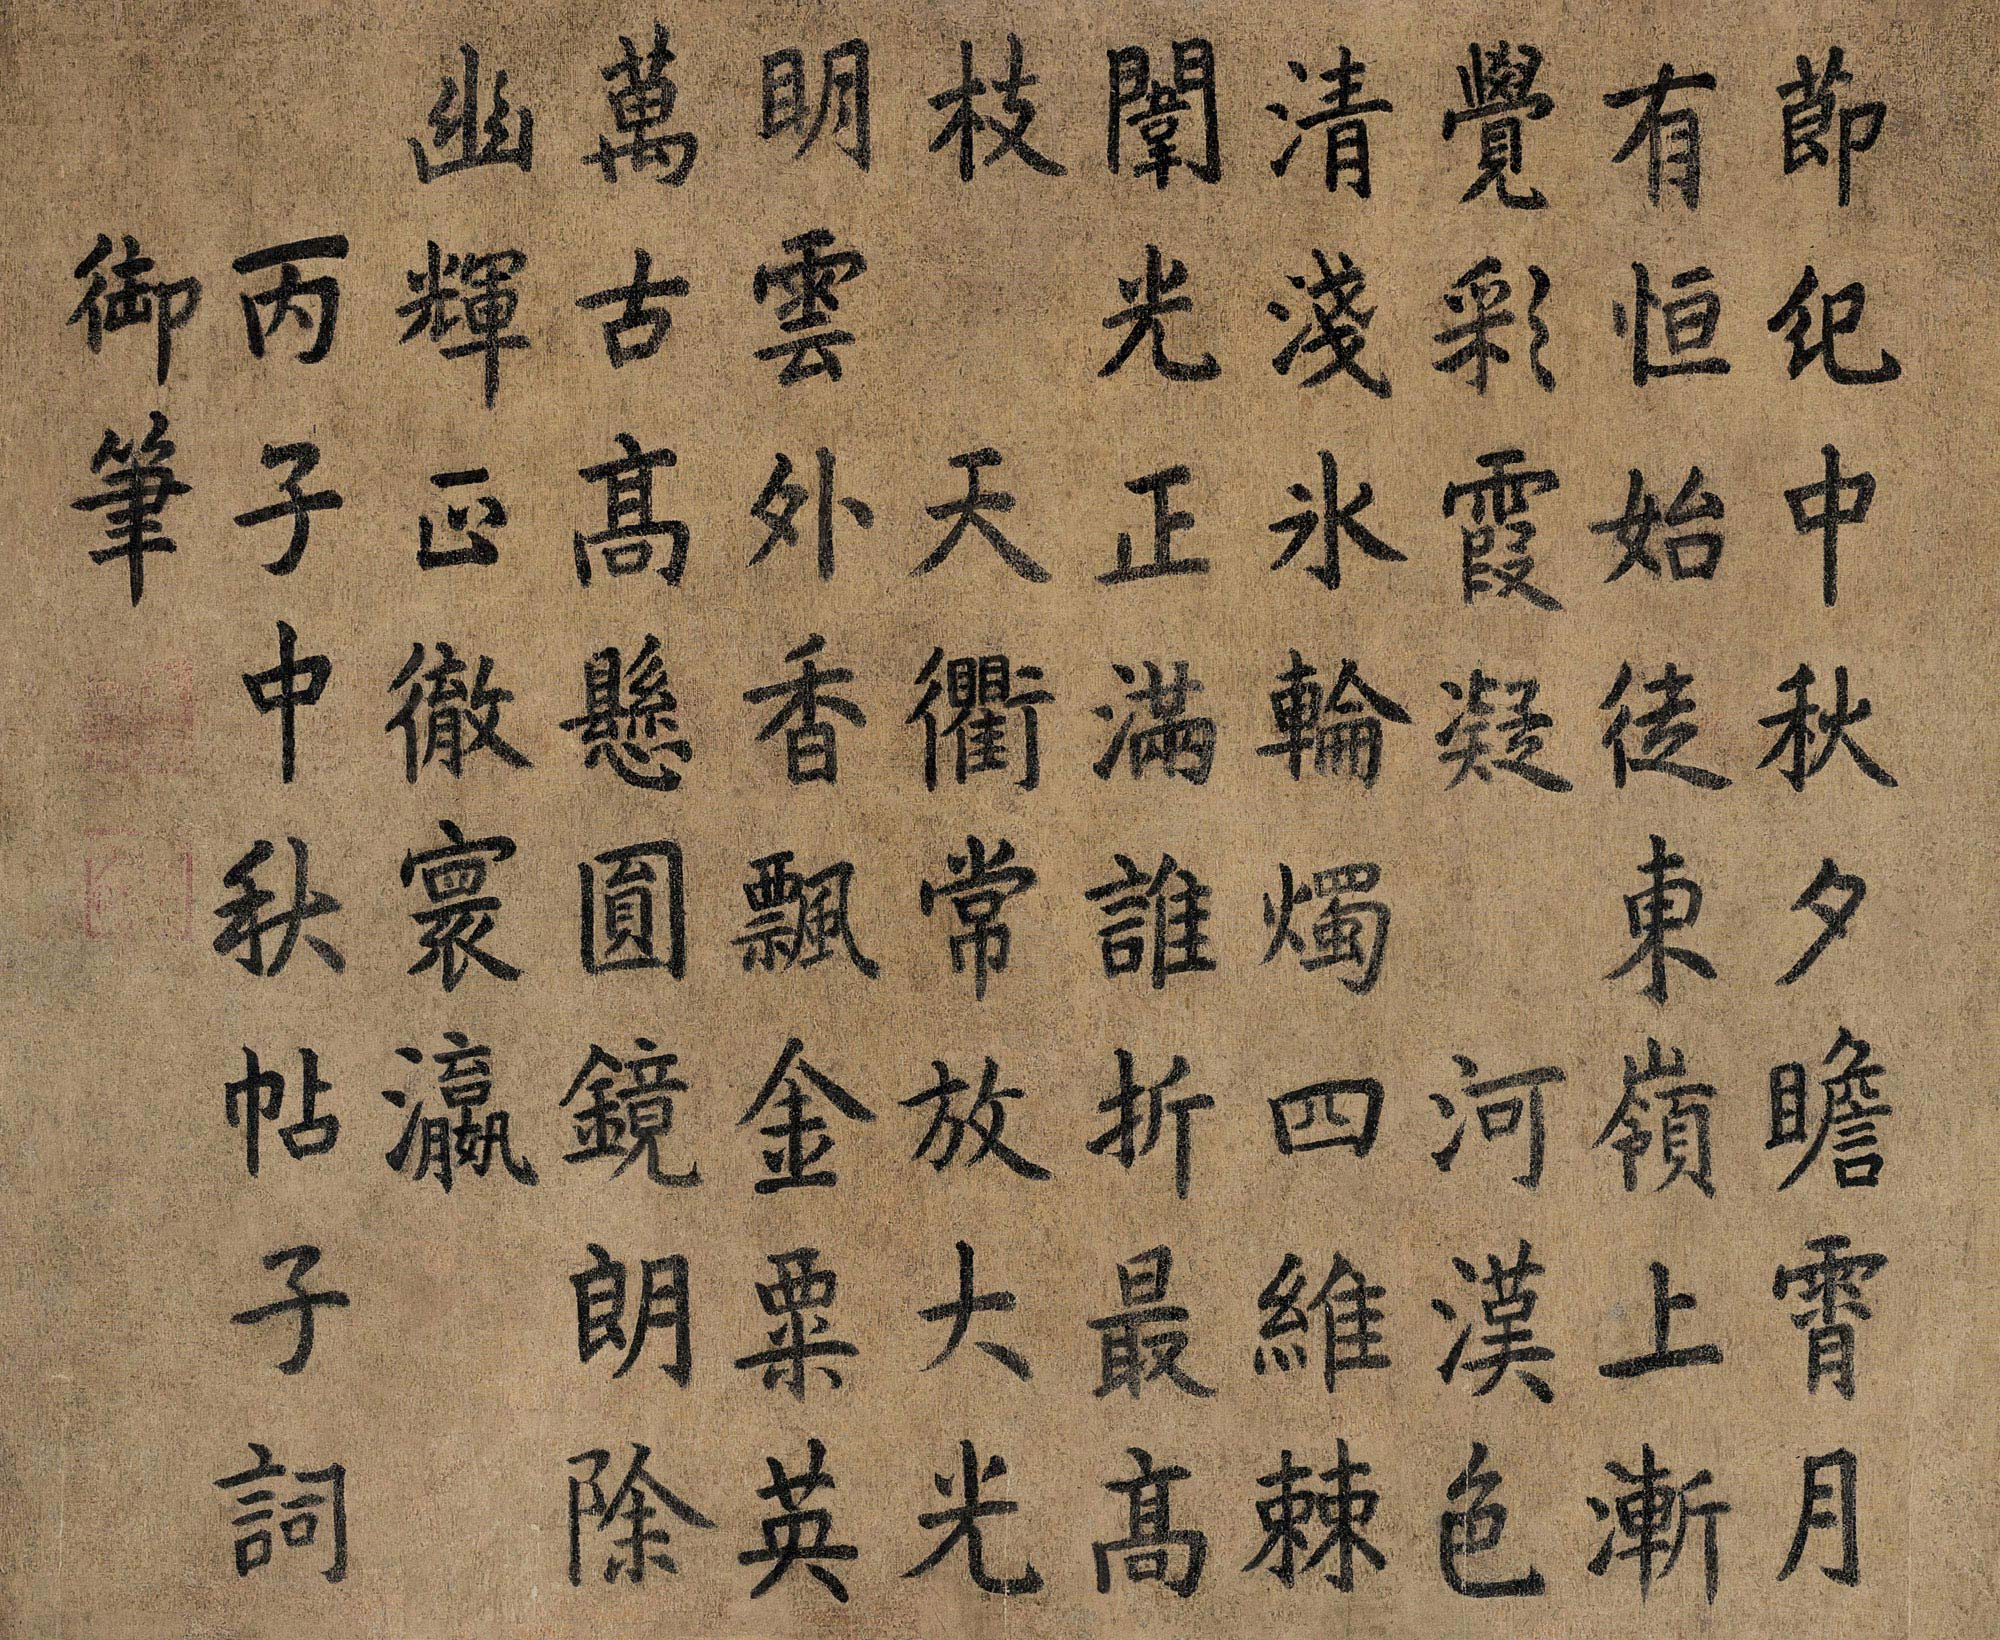 節紀中秋夕瞻霄月
有恒始徒東嶺上漸
覺彩霞凝 河漢色
清淺氷輪燭四維棘
闈光正滿誰折最高
枝 天衢常放大光
明雲外香飄金粟英
萬古高懸圓鏡朗除
幽輝正徹寰瀛
丙子中秋帖子詞
御筆